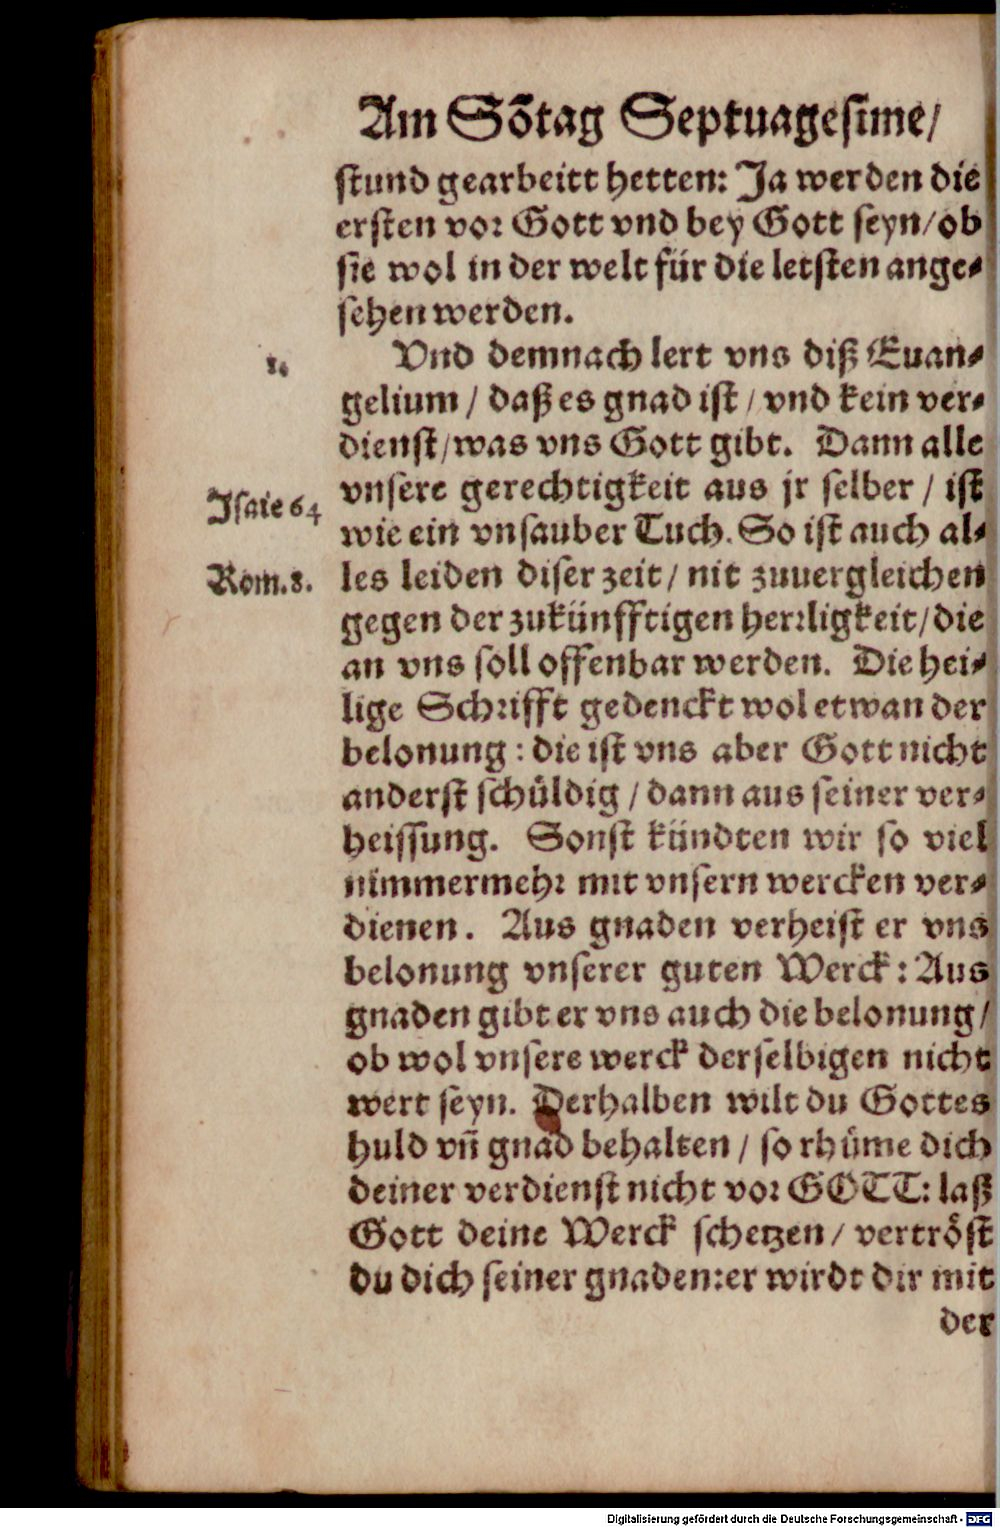 Am Sõtag Septuagesime/
stund gearbeitt hetten: Ja werden die
ersten vor Gott vnd bey Gott seyn/ob
sie wol in der welt für die letsten ange-
sehen werden.
1.
Vnd demnach lert vns diß Euan-
gelium / daß es gnad ist / vnd kein ver-
dienst/was vns Gott gibt. Dann alle
Isaie 64
vnsere gerechtigkeit aus jr selber / ist
wie ein vnsauber Tuch. So ist auch al-
Rom.8.
les leiden diser zeit / nit zuuergleichen
gegen der zukünfftigen herrligkeit/die
an vns soll offenbar werden. Die hei-
lige Schrifft gedenckt wol etwan der
belonung: die ist vns aber Gott nicht
anderst schüldig / dann aus seiner ver-
heissung. Sonst kündten wir so viel
nimmermehr mit vnsern wercken ver-
dienen. Aus gnaden verheist er vns
belonung vnserer guten Werck: Aus
gnaden gibt er vns auch die belonung/
ob wol vnsere werck derselbigen nicht
wert seyn. Derhalben wilt du Gottes
huld vñ gnad behalten / so rhüme dich
deiner verdienst nicht vor GOTT: laß
Gott deine Werck schetzen / vertröst
du dich seiner gnaden:er wirdt dir mit
der
Digitalisierung gefördert durch die Deutsche Forschungsgemeinschaft - DFG